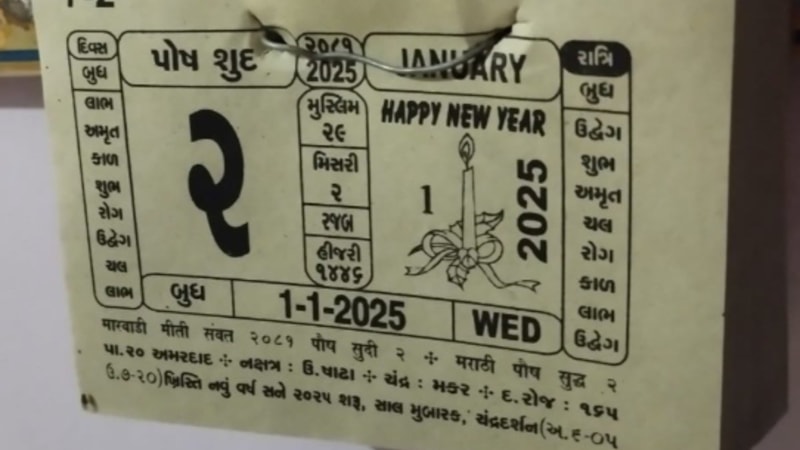 પોષ શુદ ૨૦૮૧ 2025 JANUARY
દિવસ
બુધ
લાભ
અમૃત
કાળ
શુભ
રોગ
ઉદ્વેગ
ચલ
લાભ
૨
મુસ્લિમ
૨૯
મિસરી
૨
રજબ
હીજરી
૧૪૪૬
HAPPY NEW YEAR
1
2025
રાત્રિ
બુધ
ઉદ્વેગ
શુભ
અમૃત
ચલ
રોગ
કાળ
લાભ
ઉદ્વેગ
બુધ 1-1-2025 WED
मारवाडी मीती संवत २०८१ पौष सुदी २ ÷ मराठी पौष सुद्ध २
પા.૨૦ અમરદાદ ÷ નક્ષત્ર : ઉ.ષાઢા ÷ ચંદ્ર : મકર ÷ દ.રોજ : ૧૬૫
ઉ.૭-૨૦) ખ્રિસ્તિ નવું વર્ષ સને ૨૦૨૫ શરૂ, સાલ મુબારક, ચંદ્રદર્શન(અ.૬-૦૫